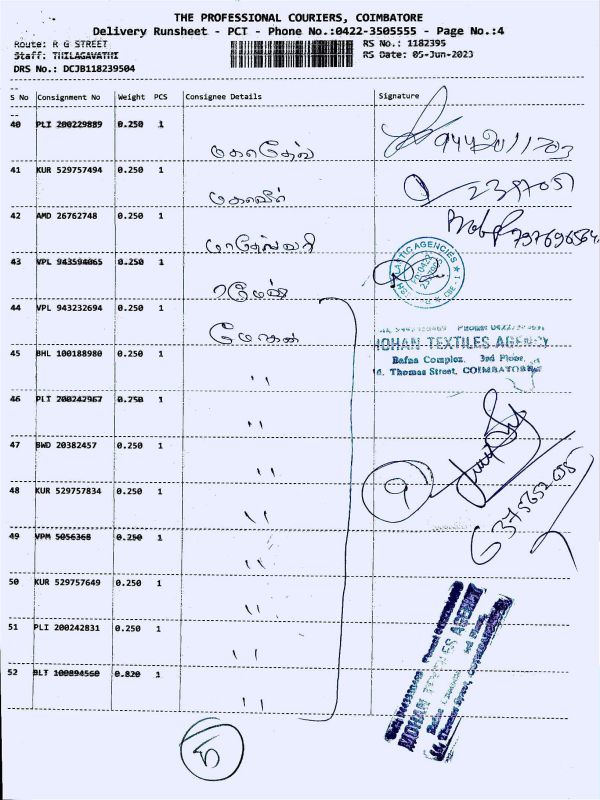 THE PROFESSIONAL COURIERS, COIMBATORE
Delivery Runsheet - PCT - Phone No.:0422-3505555 - Page No.:4
Route: R G STREET
RS No.: 1182395
Staff: THILAGAVATHI
RS Date: 05-Jun-2023
DRS No.: DCJB118239504
S No Consignment No Weight PCS Consignee Details Signature
40 PLI 200229889 0.250 1
மகாதேவ்
41 KUR 529757494 0.250 1
மகாவீர்
42 AMD 26762748 0.250 1
மாதேஸ்வரி
43 VPL 943594065 0.250 1
ரமேஷ்
44 VPL 943232694 0.250 1
மோகன்
MOHAN TEXTILES AGENCY
Bafna Complex, 3rd Floor,
Thomas Street, COIMBATORE
45 BHL 100188980 0.250 1
"
46 PLI 200242967 0.250 1
"
47 BWD 20382457 0.250 1
"
48 KUR 529757834 0.250 1
"
9
49 VPM 5056368 0.250 1
"
50 KUR 529757649 0.250 1
"
51 PLI 200242831 0.250 1
"
52 BLT 100894560 0.820 1
"
MOHAN TEXTILES AGENCY
Thomas Street, COIMBATORE